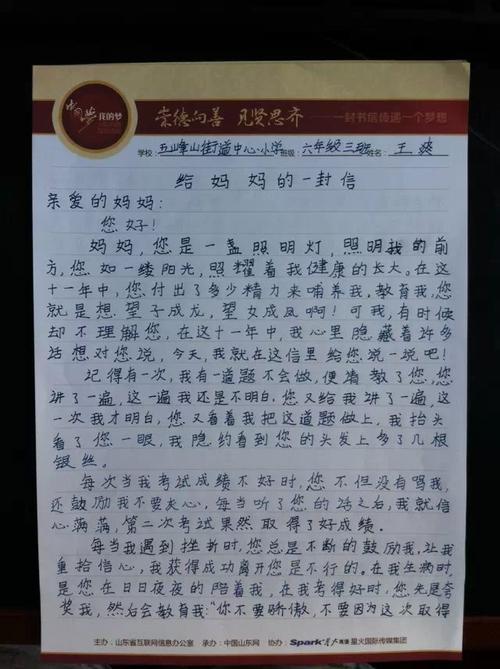 中国梦 我的梦
崇德向善 见贤思齐 一封书信传递一个梦想
学校:五峰山街道中心小学 班级:六年级三班 姓名:王爽
给妈妈的一封信
亲爱的妈妈:
您好!
妈妈,您是一盏照明灯,照明我的前
方,您如一缕阳光,照耀着我健康的长大。在这
十一年中,您付出了多少精力来哺养我,教育我,您
就是想望子成龙,望女成凤啊!可我,有时候
却不理解您,在这十一年中,我心里隐藏着许多
话想对您说,今天,我就在这信里给您说一说吧!
记得有一次,我有一道题不会做,便请教了您,您
讲了一遍,这一遍我还是不明白,您又给我讲了一遍,这
一次我才明白,您又看着我把这道题做上,我抬头
看了您一眼,我隐约看到您的头发上多了几根
银丝。
每次当我考试成绩不好时,您不但没有吗我,
还鼓励我不要灰心,每当听了您的话之后,我就信
心满满,第二次考试果然取得了好成绩。
每当我遇到挫折时,您总是不断的鼓励我,让我
重拾信心,我获得成功离开您是不行的。在我生病时
是您在日日夜夜的陪着我,在我考得好时,您先是夸
奖我,然后会教育我:“你不要骄傲,不要因为这次取得
主办:山东省互联网信息办公室 承办:中国山东网 协办:Spark星火英语 星火国际传媒集团